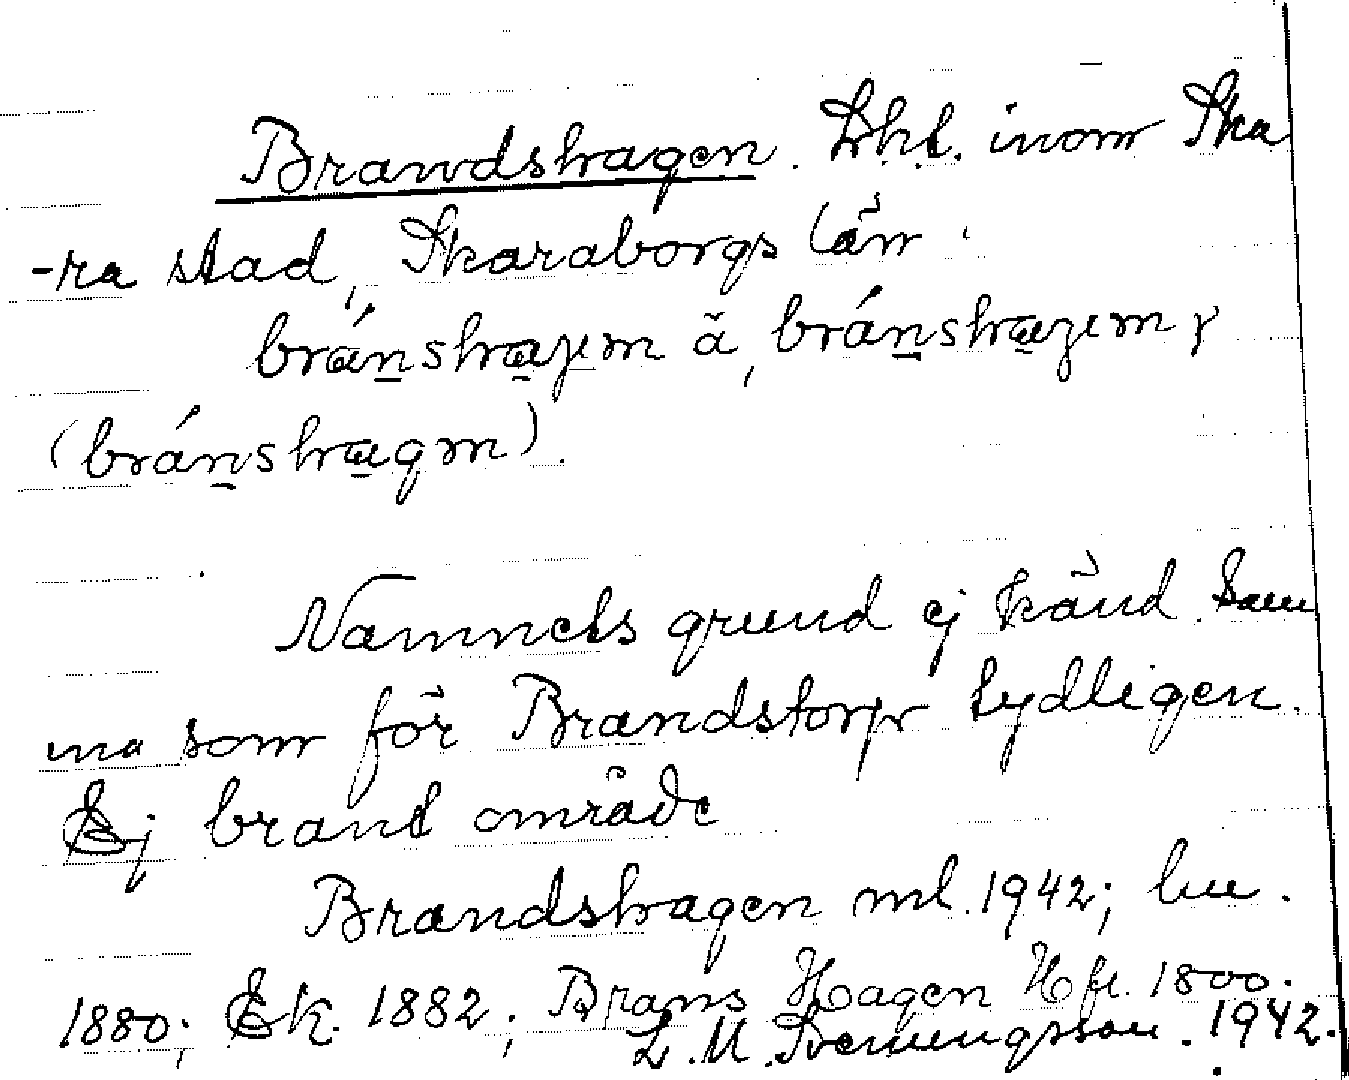 Brandshagen. Lht. inom Ska
-ra stad, Skaraborgs län.
bránshagem ä, bránshagem y
(bránshagm).
Namnets grund ej känd. Sam
ma som för Brandstorp tydligen.
Ej brant område
Brandshagen ml. 1942; bu.
1880; Ek. 1882; Brans Hagen Hfl. 1800.
L. M. Svenungsson. 1942.